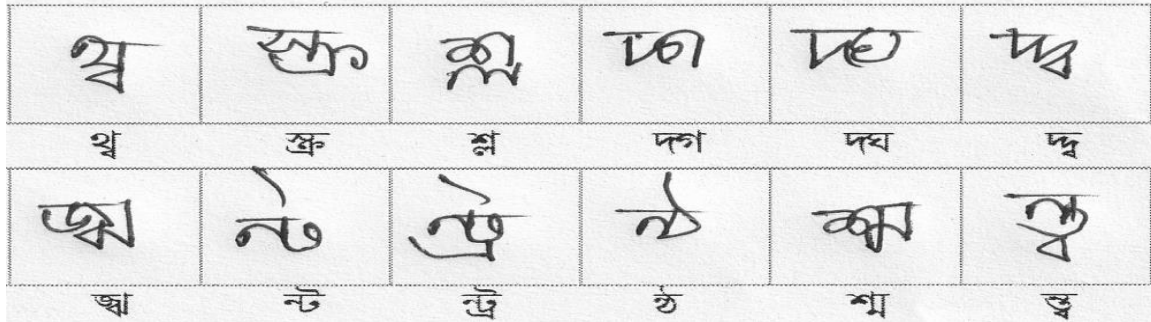 থ্ব স্ক্র শ্ল দ্গ দ্ঘ দ্দ্ব
থ্ব স্ক্র শ্ল দ্গ দ্ঘ দ্দ্ব
জ্ঝ ন্ট ন্ট্র ন্ঠ শ্ম ন্ত্ব
জ্ঝ ন্ট ন্ট্র ন্ঠ শ্ম ন্ত্ব